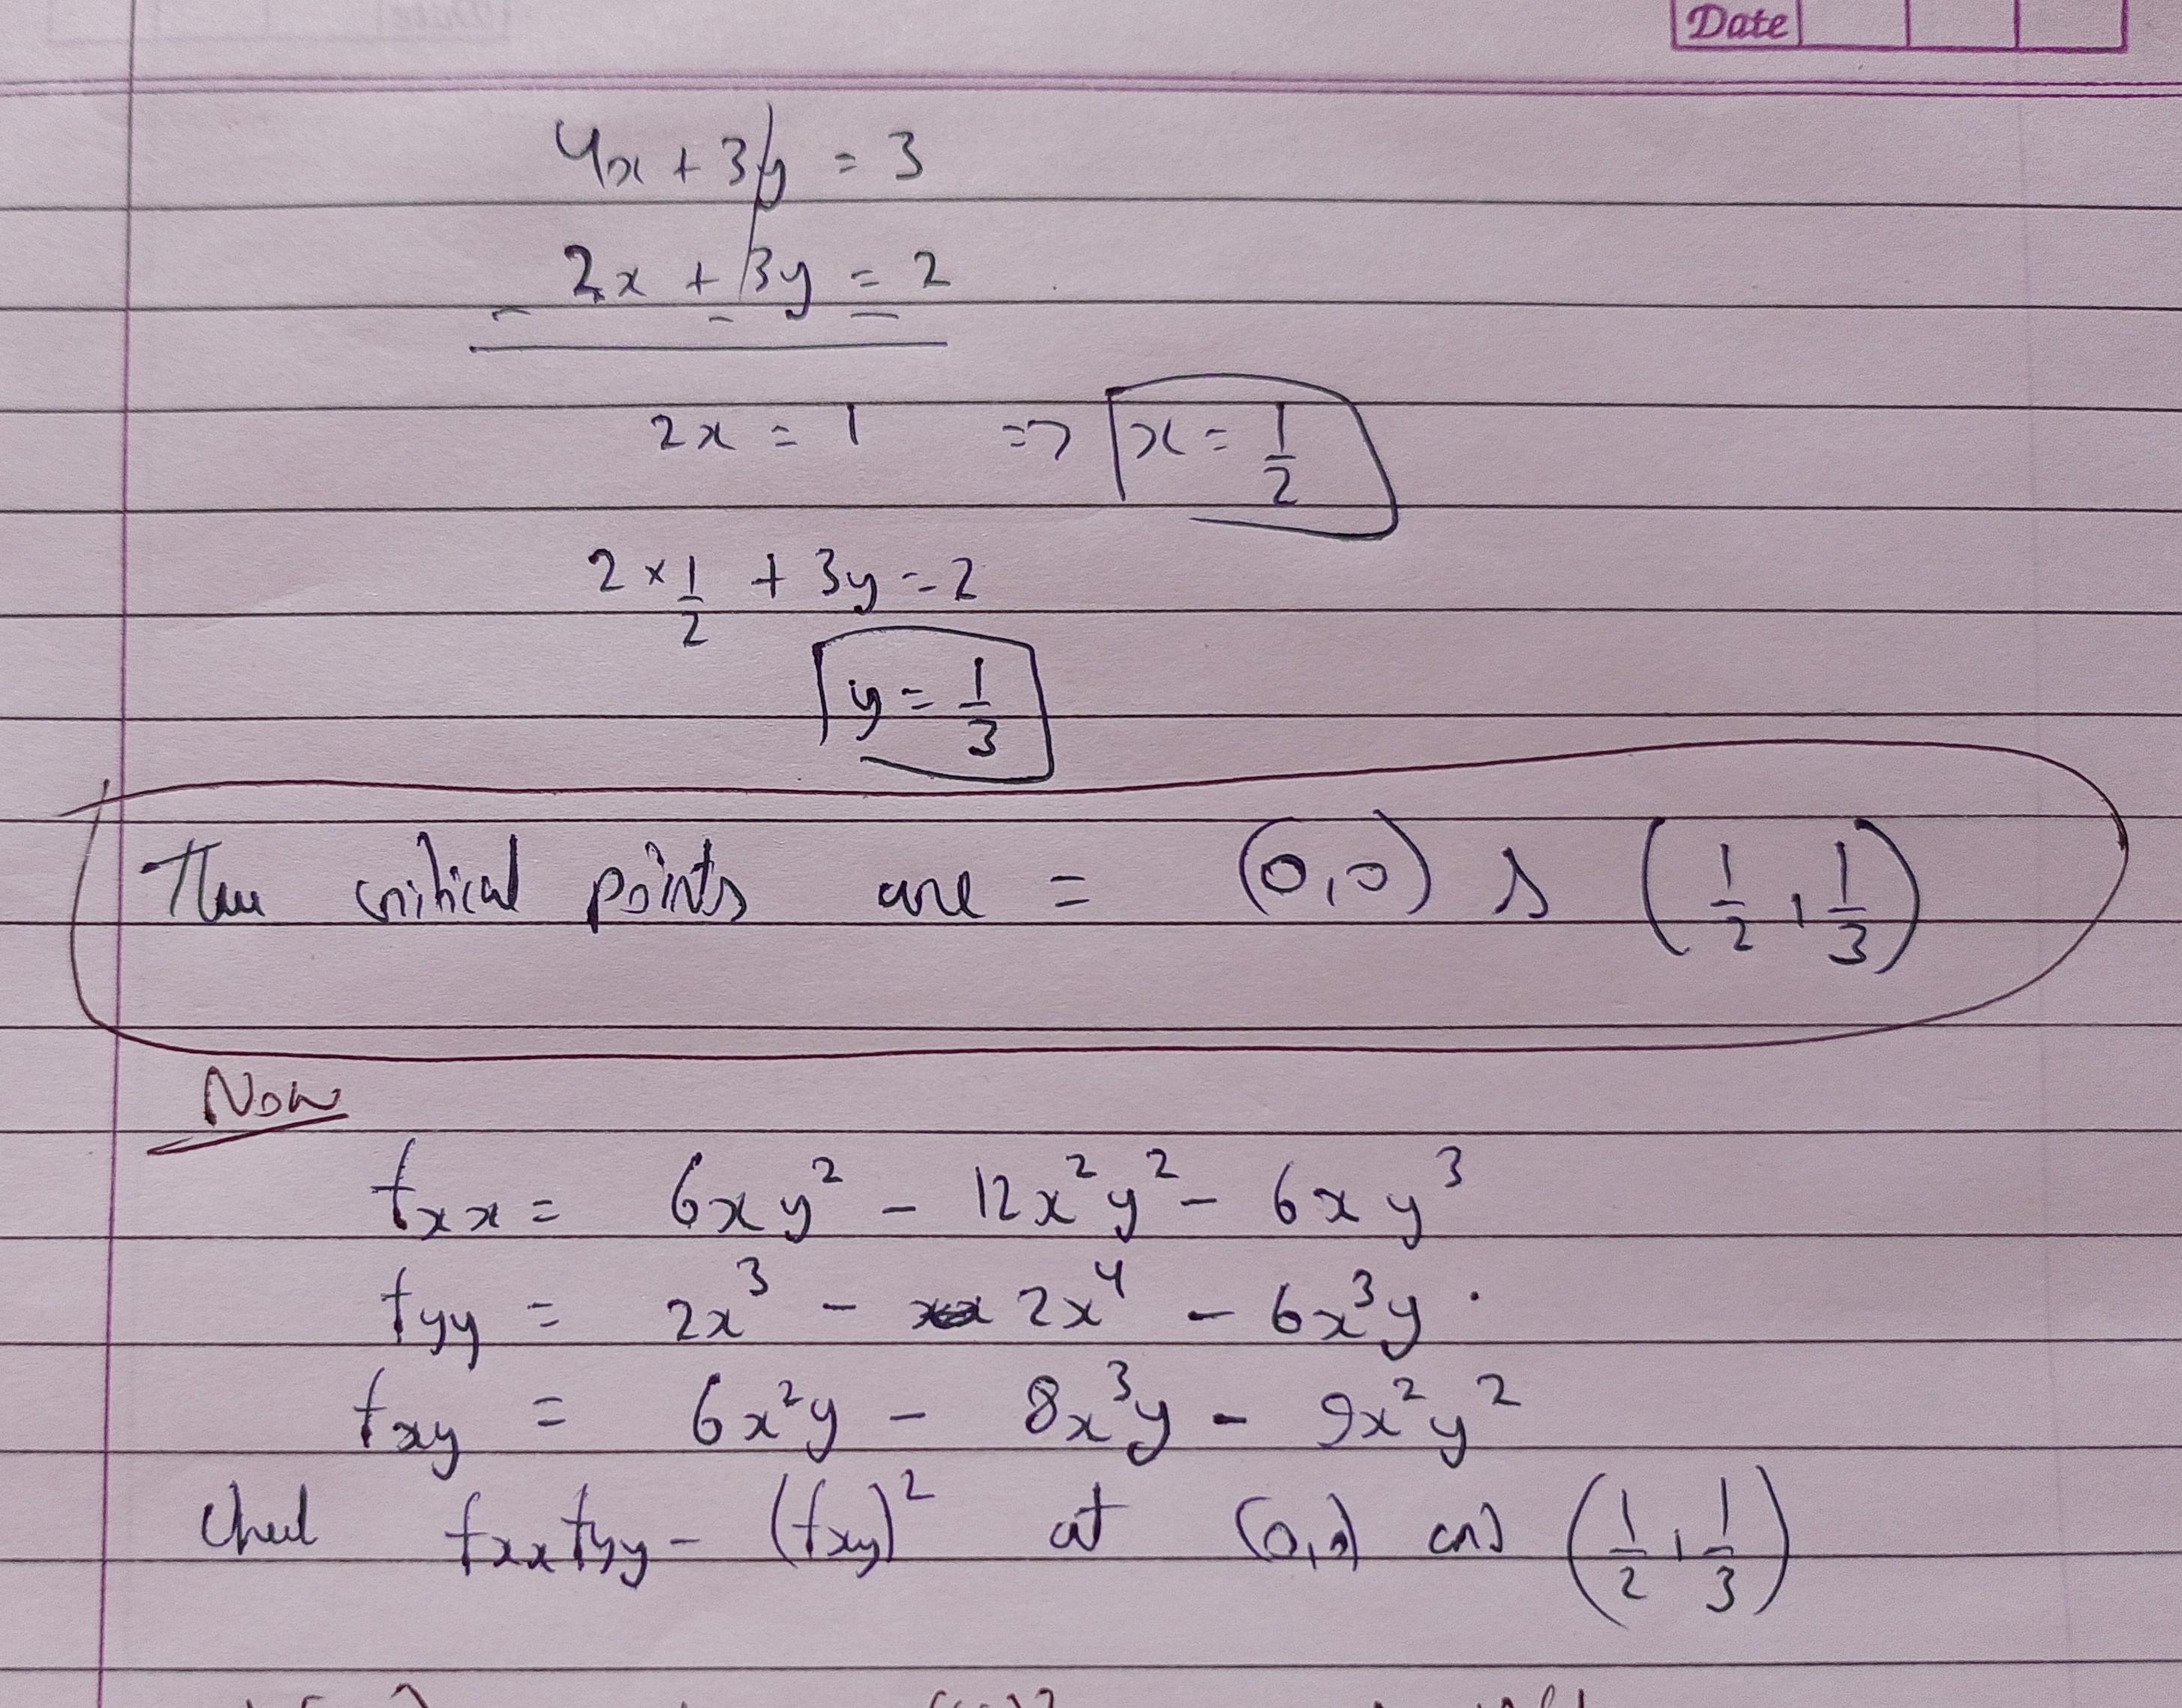 Date
4x + 3y = 3
2x + 3y = 2
- - -
2x = 1 => x = 1/2
2 × 1/2 + 3y = 2
y = 1/3
critical points are = (0,0) & (1/2, 1/3)
Now
fxx = 6xy² - 12x²y² - 6xy³
fyy = 2x³ - 2x⁴ - 6x³y.
fxy = 6x²y - 8x³y - 9x²y²
fxxfyy - (fxy)² at (0,0) and (1/2, 1/3)